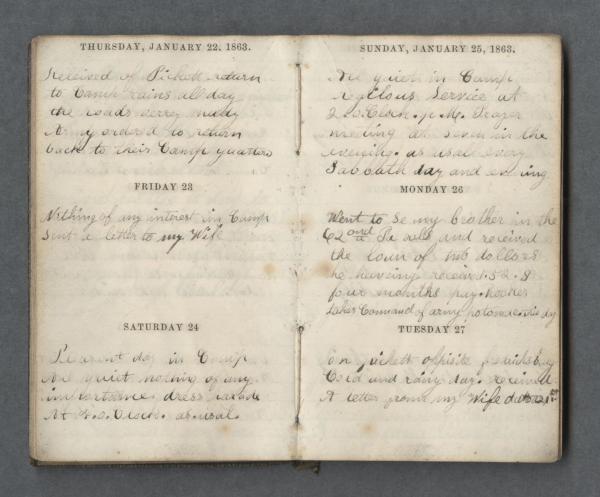 THURSDAY, JANUARY 22, 1863.
Releived of Pickett return
to Camp rains all day
the roads verry mudy
Army ordered to return
back to their Camp quatters
FRIDAY 23
Nothing of any interest in Camp
Sent a letter to my Wife
SATURDAY 24
Pleasent day in Camp
All quiet nothing of any
importance dress parade
At 4.O.Clock. as usal.
SUNDAY, JANUARY 25, 1863.
All quiet in Camp
Service at
2.O.Clock. P.M. Prayer
meeting at Seven in the
evening. as usal every
Sabbath day and evening
MONDAY 26
Went to Se my brother in the
62 and Pa vols and received
the loan of dollors
he haveing received 52.$
four months pay. Hooker
takes Command of army potomac this day
TUESDAY 27
on pickett opisite
Cold and rainy day. received
A letter from my Wife dated 21st